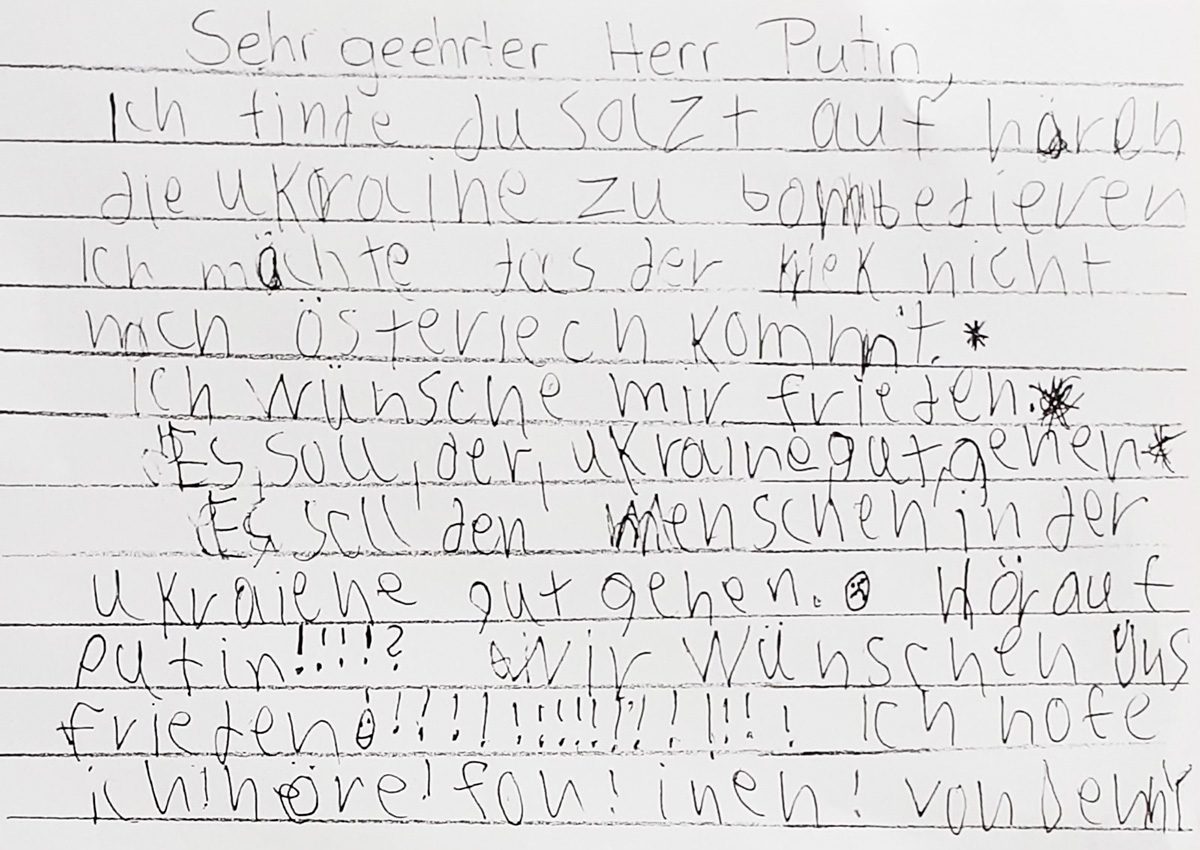 Sehr geehrter Herr Putin,
Ich finde du solzt auf hören
die ukraine zu bombedieren
Ich möchte das der kriek nicht
nach österiech kommt.*
ich wünsche mir frieden.*
Es, soll, der, ukraine gut, gehen*
Es soll den menschen in der
ukraiene gut gehen. Hör auf
Putin!!!!? Wir wünschen uns
frieden!!!!!!!!!!!!!!!!! Ich hofe
ich! höre! fon! inen! von